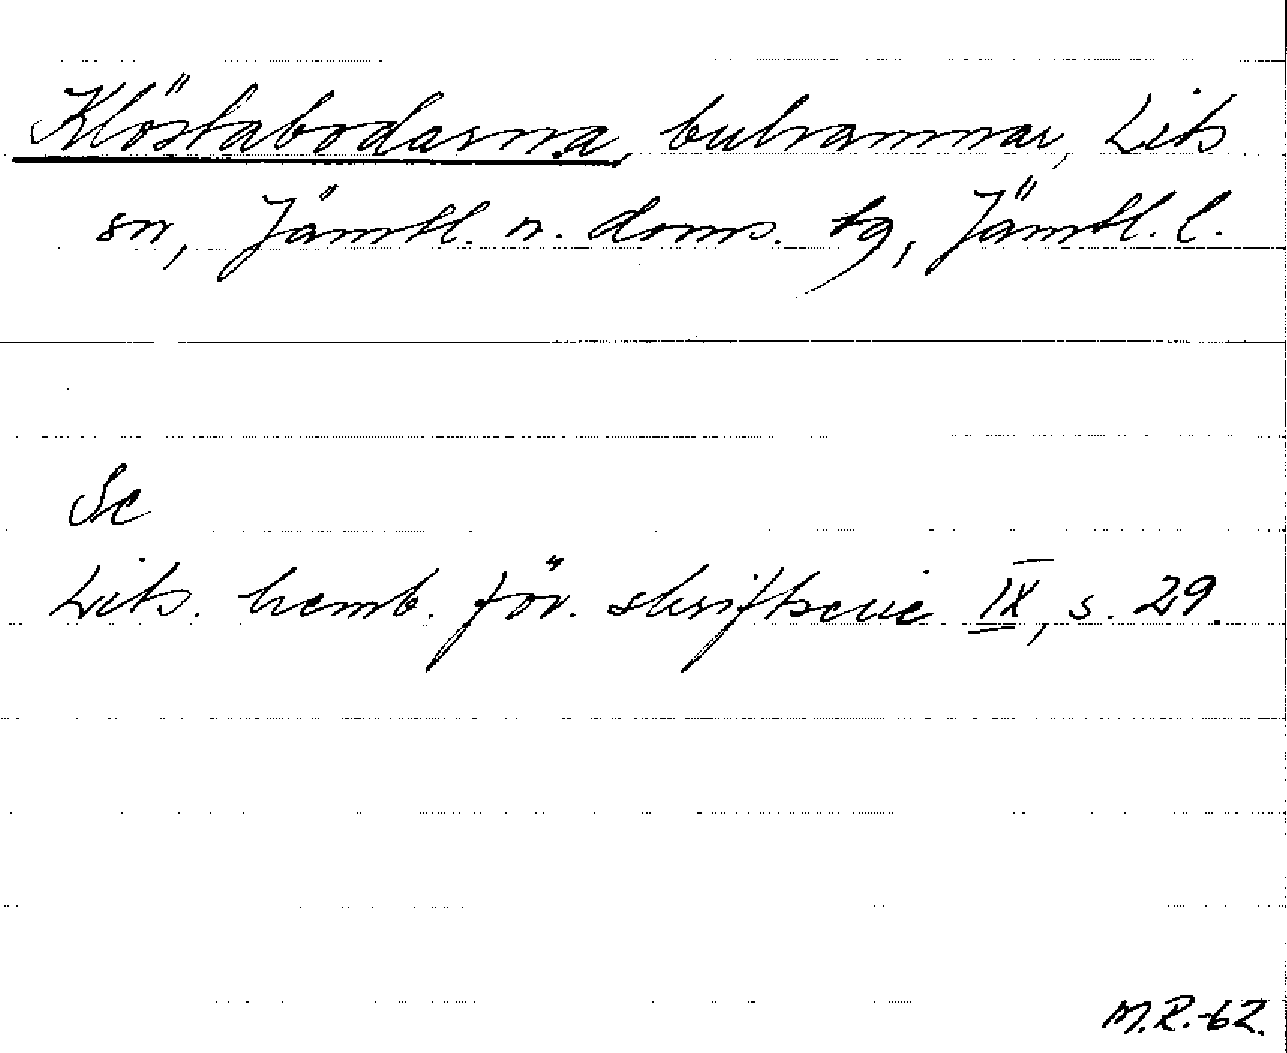 Klöstabodarna, buhammar, Lits
sn, Jämtl. n. doms. tg, Jämtl. l.
Se
Lits. hemb. för. skriftserie IX, s. 29.
M.R.-62.